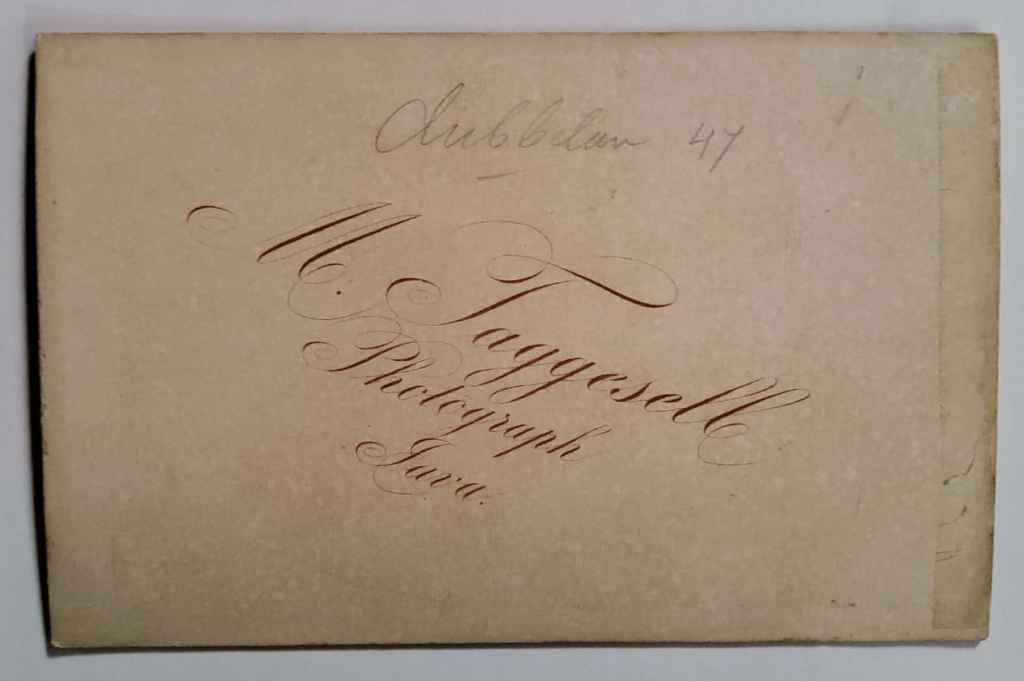 dubbelan 47
M. Taggesell
Photograph
Java.